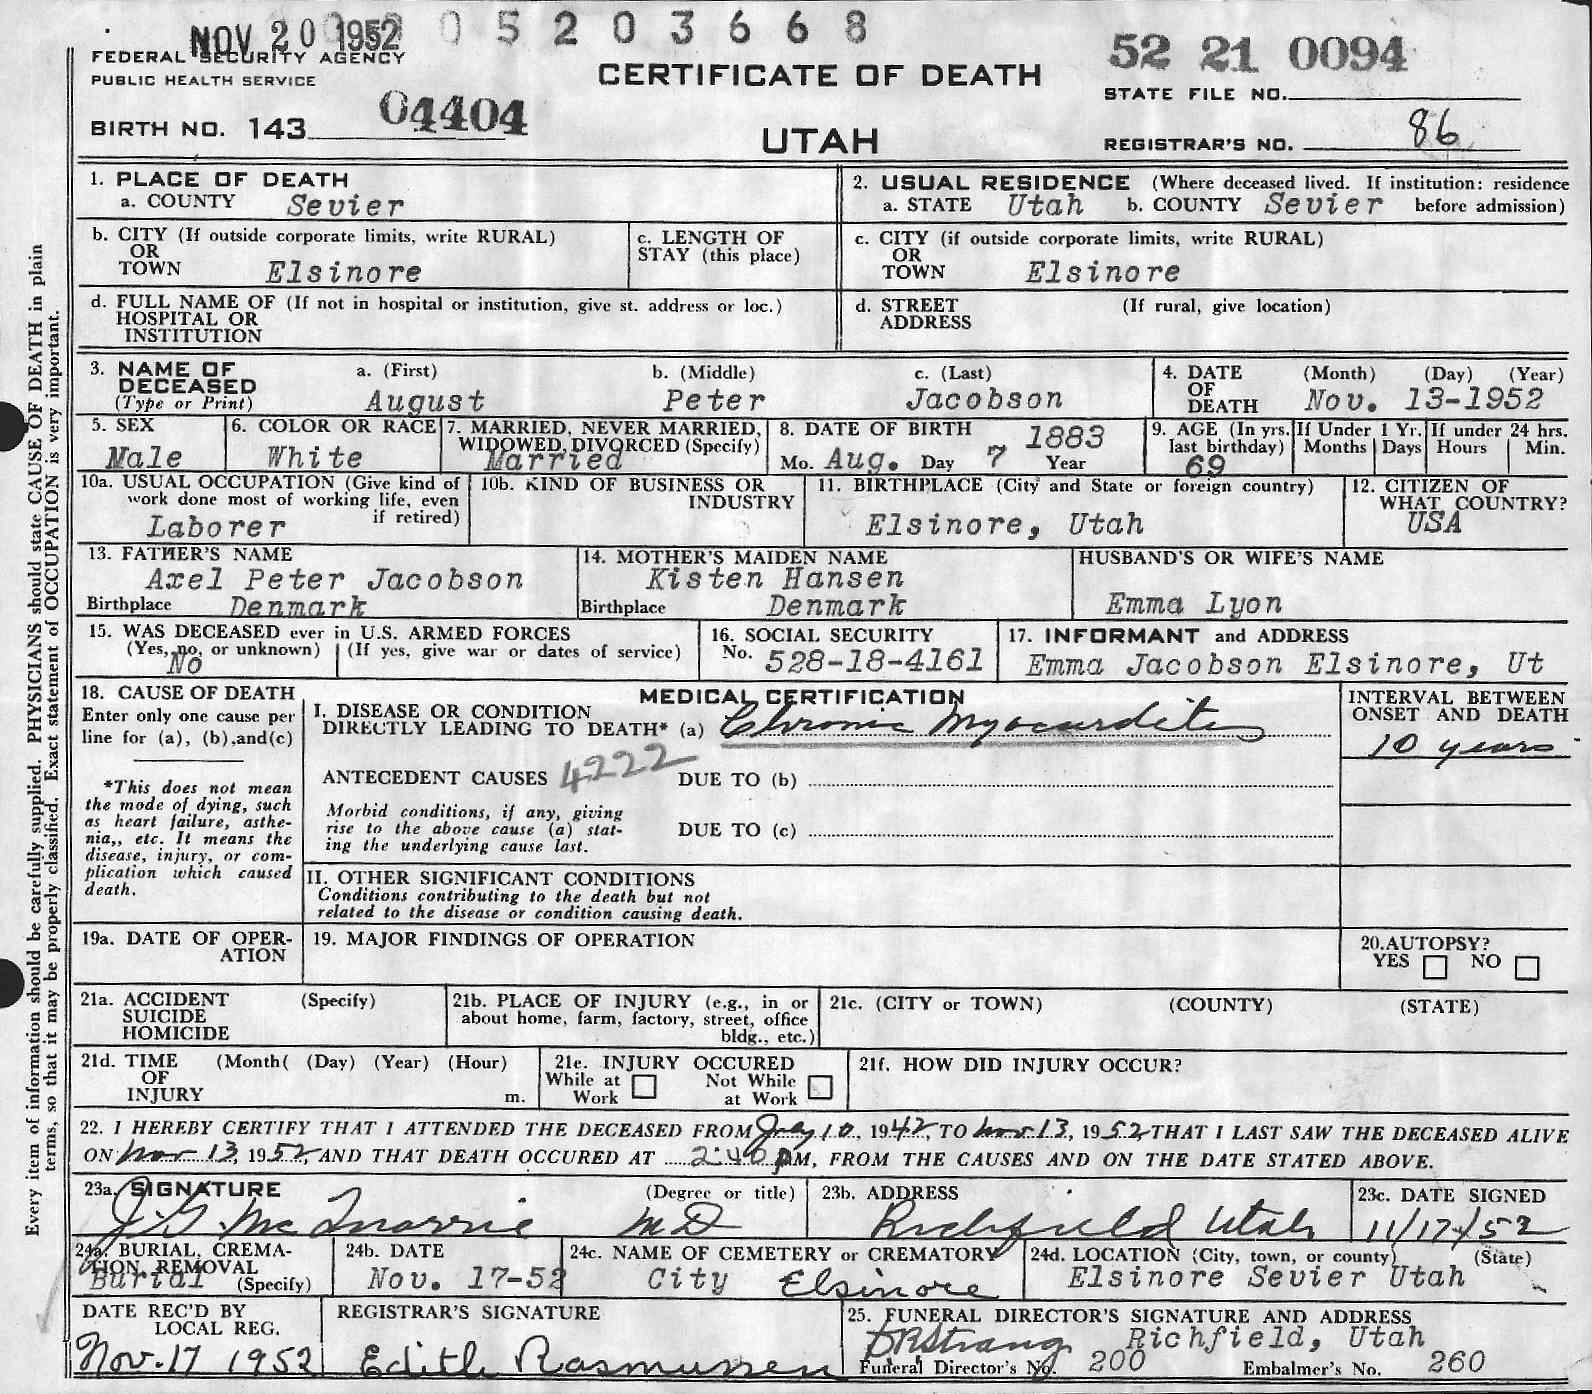 NOV 20 1952 0 5 2 0 3 6 6 8
FEDERAL SECURITY AGENCY
PUBLIC HEALTH SERVICE
CERTIFICATE OF DEATH
52 21 0094
STATE FILE NO.
BIRTH NO. 143 04404
UTAH
REGISTRAR'S NO. 86
Every item of information should be carefully supplied. PHYSICIANS should state CAUSE OF DEATH in plain
terms, so that it may be properly classified. Exact statement of OCCUPATION is very important.
1. PLACE OF DEATH
a. COUNTY Sevier
2. USUAL RESIDENCE (Where deceased lived. If institution: residence
a. STATE Utah b. COUNTY Sevier before admission)
b. CITY (If outside corporate limits, write RURAL)
OR
TOWN Elsinore
c. LENGTH OF
STAY (this place)
c. CITY (if outside corporate limits, write RURAL)
OR
TOWN Elsinore
d. FULL NAME OF (If not in hospital or institution, give st. address or loc.)
HOSPITAL OR
INSTITUTION
d. STREET (If rural, give location)
ADDRESS
3. NAME OF a. (First) b. (Middle) c. (Last)
DECEASED
(Type or Print) August Peter Jacobson
4. DATE (Month) (Day) (Year)
OF
DEATH Nov. 13-1952
5. SEX
Male
6. COLOR OR RACE
White
7. MARRIED, NEVER MARRIED,
WIDOWED, DIVORCED (Specify)
Married
8. DATE OF BIRTH 1883
Mo. Aug. Day 7 Year
9. AGE (In yrs.
last birthday)
69
If Under 1 Yr.
Months Days
If under 24 hrs.
Hours Min.
10a. USUAL OCCUPATION (Give kind of
work done most of working life, even
if retired)
Laborer
10b. KIND OF BUSINESS OR
INDUSTRY
11. BIRTHPLACE (City and State or foreign country)
Elsinore, Utah
12. CITIZEN OF
WHAT COUNTRY?
USA
13. FATHER'S NAME
Axel Peter Jacobson
Birthplace Denmark
14. MOTHER'S MAIDEN NAME
Kisten Hansen
Birthplace Denmark
HUSBAND'S OR WIFE'S NAME
Emma Lyon
15. WAS DECEASED ever in U.S. ARMED FORCES
(Yes, no, or unknown) (If yes, give war or dates of service)
No
16. SOCIAL SECURITY
No. 528-18-4161
17. INFORMANT and ADDRESS
Emma Jacobson Elsinore, Ut
18. CAUSE OF DEATH
Enter only one cause per
line for (a), (b), and (c)
*This does not mean
the mode of dying, such
as heart failure, asthe-
nia,, etc. It means the
disease, injury, or com-
plication which caused
death.
MEDICAL CERTIFICATION
I. DISEASE OR CONDITION
DIRECTLY LEADING TO DEATH* (a) Chronic Myocardites
ANTECEDENT CAUSES 4222 DUE TO (b)
Morbid conditions, if any, giving
rise to the above cause (a) stat-
ing the underlying cause last.
DUE TO (c)
II. OTHER SIGNIFICANT CONDITIONS
Conditions contributing to the death but not
related to the disease or condition causing death.
INTERVAL BETWEEN
ONSET AND DEATH
10 years
19a. DATE OF OPER-
ATION
19. MAJOR FINDINGS OF OPERATION
20. AUTOPSY?
YES NO
21a. ACCIDENT (Specify)
SUICIDE
HOMICIDE
21b. PLACE OF INJURY (e.g., in or
about home, farm, factory, street, office
bldg., etc.)
21c. (CITY or TOWN) (COUNTY) (STATE)
21d. TIME (Month( (Day) (Year) (Hour)
OF
INJURY m.
21e. INJURY OCCURED
While at Not While
Work at Work
21f. HOW DID INJURY OCCUR?
22. I HEREBY CERTIFY THAT I ATTENDED THE DECEASED FROM 10, 1942, TO Nov 13, 1952 THAT I LAST SAW THE DECEASED ALIVE
ON Nov 13, 1952, AND THAT DEATH OCCURED AT 2:40 PM, FROM THE CAUSES AND ON THE DATE STATED ABOVE.
23a. SIGNATURE (Degree or title)
J.G. McQuarrie MD
23b. ADDRESS
Richfield Utah
23c. DATE SIGNED
11/17/52
24a. BURIAL, CREMA-
TION, REMOVAL
Burial (Specify)
24b. DATE
Nov. 17-52
24c. NAME OF CEMETERY or CREMATORY
City Elsinore
24d. LOCATION (City, town, or county) (State)
Elsinore Sevier Utah
DATE REC'D BY
LOCAL REG.
Nov. 17 1952
REGISTRAR'S SIGNATURE
Edith Rasmussen
25. FUNERAL DIRECTOR'S SIGNATURE AND ADDRESS
DR Strang Richfield, Utah
Funeral Director's No. 200 Embalmer's No. 260